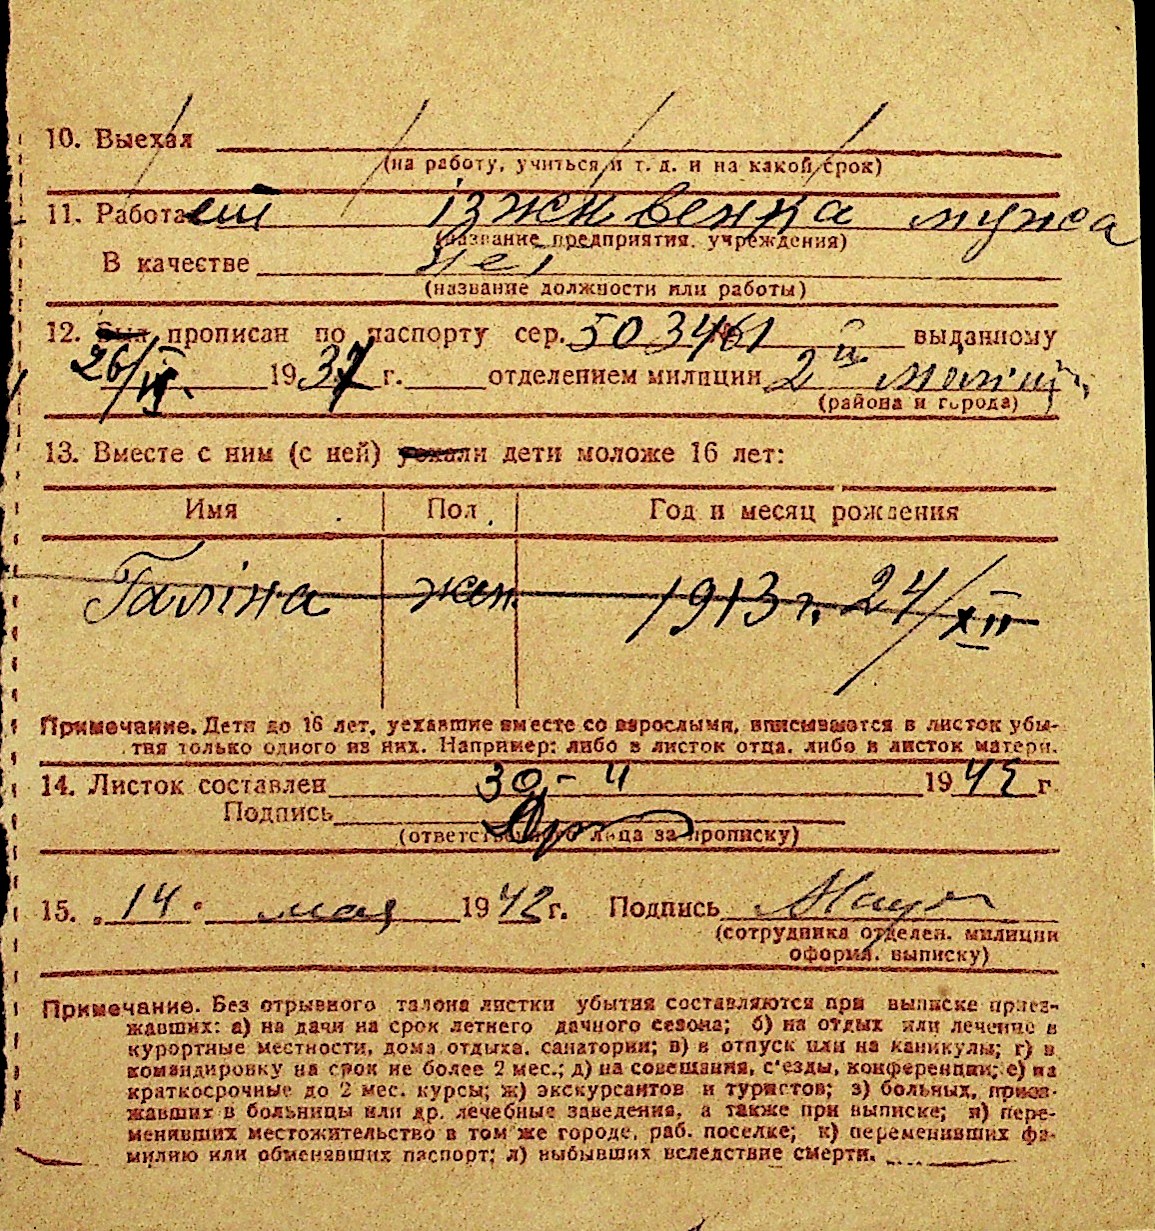 10. Выехал
(на работу, учиться и т. д. и на какой срок)
11. Работает іждивенка мужа
(название предприятия, учреждения)
В качестве нет
(название должности или работы)
12. Был прописан по паспорту сер. 503461 № выданному
26/IV. 1937 г. отделением милиции 2й
(района и города)
13. Вместе с ним (с ней) уехали дети моложе 16 лет:
Имя Пол Год и месяц рождения
Галіна жен. 1913 г. 24/XII
Примечание. Дети до 16 лет, уехавшие вместе со взрослыми, вписываются в листок убы-
тия только одного из них. Например: либо в листок отца, либо в листок матери.
14. Листок составлен 30 - 4 1942 г
Подпись
(ответственного лица за прописку)
15. „14" мая 1942 г. Подпись
(сотрудника отделен. милиции
оформл. выписку)
Примечание. Без отрывного талона листки убытия составляются при выписке приез-
жавших: а) на дачи на срок летнего дачного сезона; б) на отдых или лечение в
курортные местности, дома отдыха, санатории; в) в отпуск или на каникулы; г) в
командировку на срок не более 2 мес.; д) на совещания, с'езды, конференции; е) на
краткосрочные до 2 мес. курсы; ж) экскурсантов и туристов; з) больных, приез-
жавших в больницы или др. лечебные заведения, а также при выписке; и) пере-
менивших местожительство в том же городе, раб. поселке; к) переменивших фа-
милию или обменявших паспорт; л) выбывших вследствие смерти.